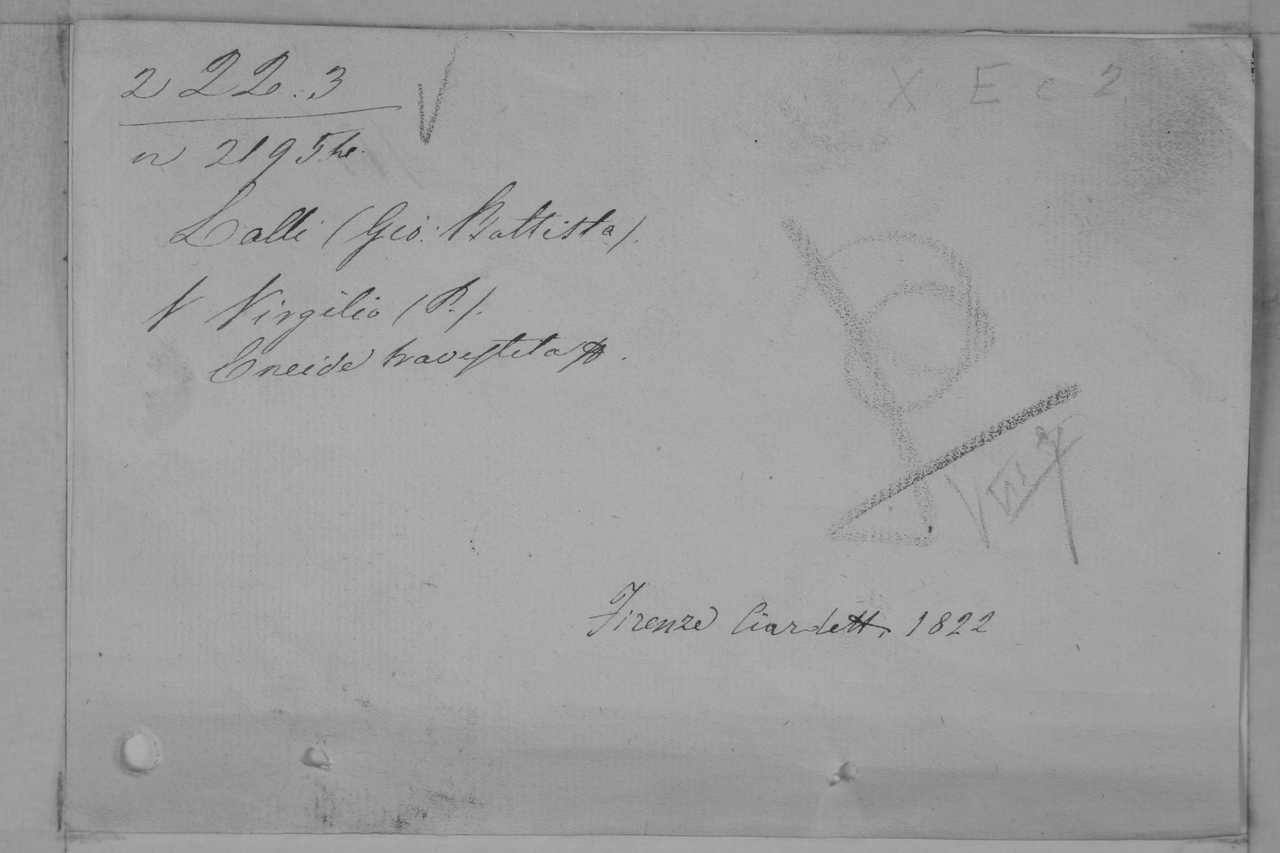 2 22.3
X E c 2
n 2195
Lalli (Gio: Battista).
V Virgilio (P.).
Eneide travestita
Firenze Ciardetti 1822